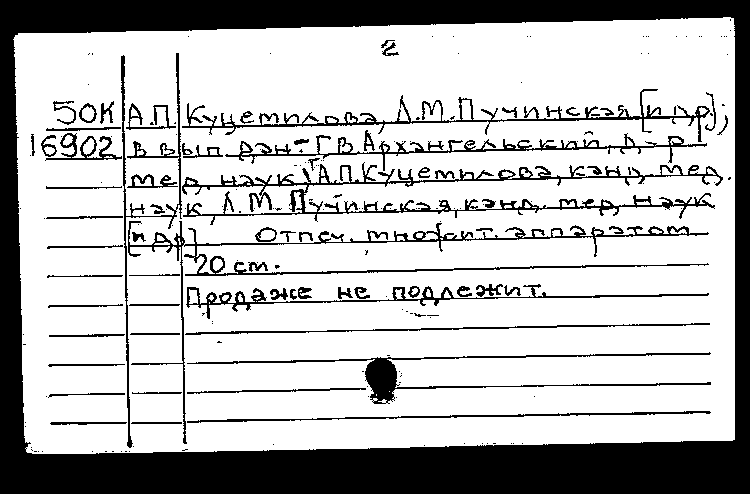 2
50К А.П. Куцемилова, Л.М. Пучинская [и др];
16902 в вып. дан.- Г В Архангельский, д-р
мед. наук, А.П. Куцемилова, канд. мед.
наук, Л.М. Пучинская, канд. мед. наук
[и др] Отпеч. множит. аппаратом
20 см.
Продаже не подлежит.